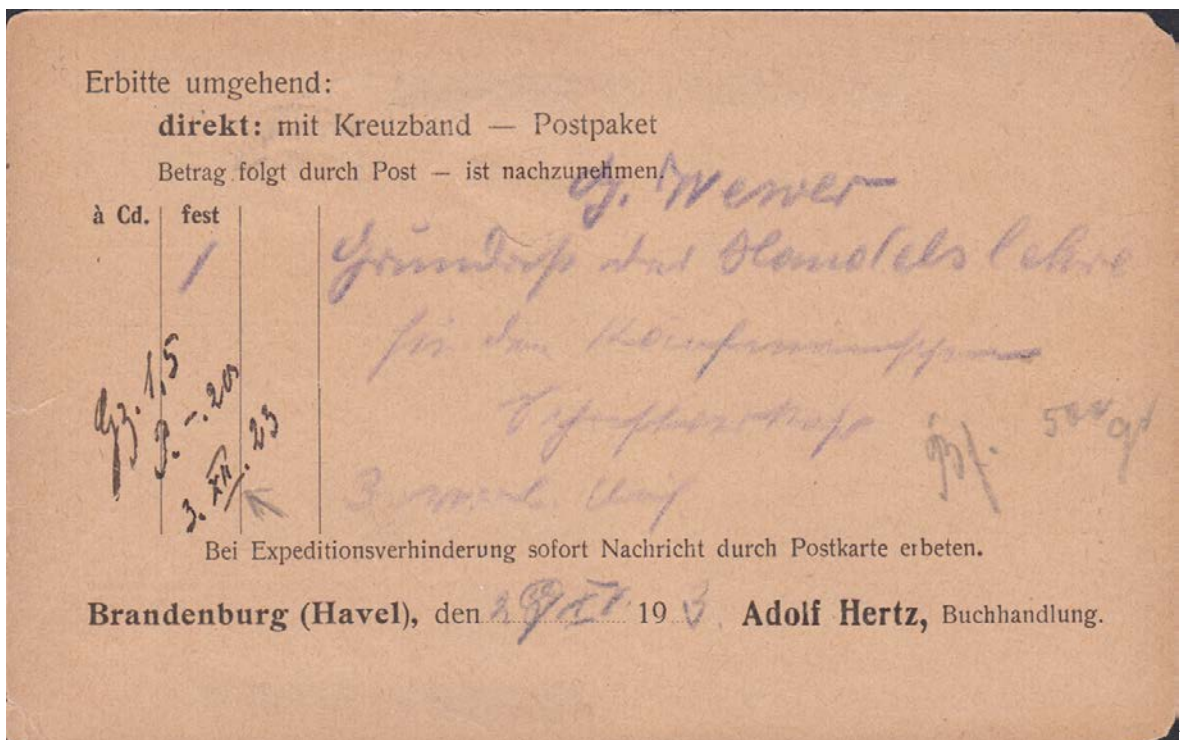 Erbitte umgehend:
direkt: mit Kreuzband — Postpaket
Betrag folgt durch Post — ist nachzunehmen.
G. Wewer
à Cd. fest
1 Grundriß der Handelslehre
für den Kaufmännischen
Gz. 1,5
P. -.20
3. XII. 23
Schriftverkehr
3. Aufl.
Bei Expeditionsverhinderung sofort Nachricht durch Postkarte erbeten.
Brandenburg (Havel), den 29 XI 19 3 Adolf Hertz, Buchhandlung.